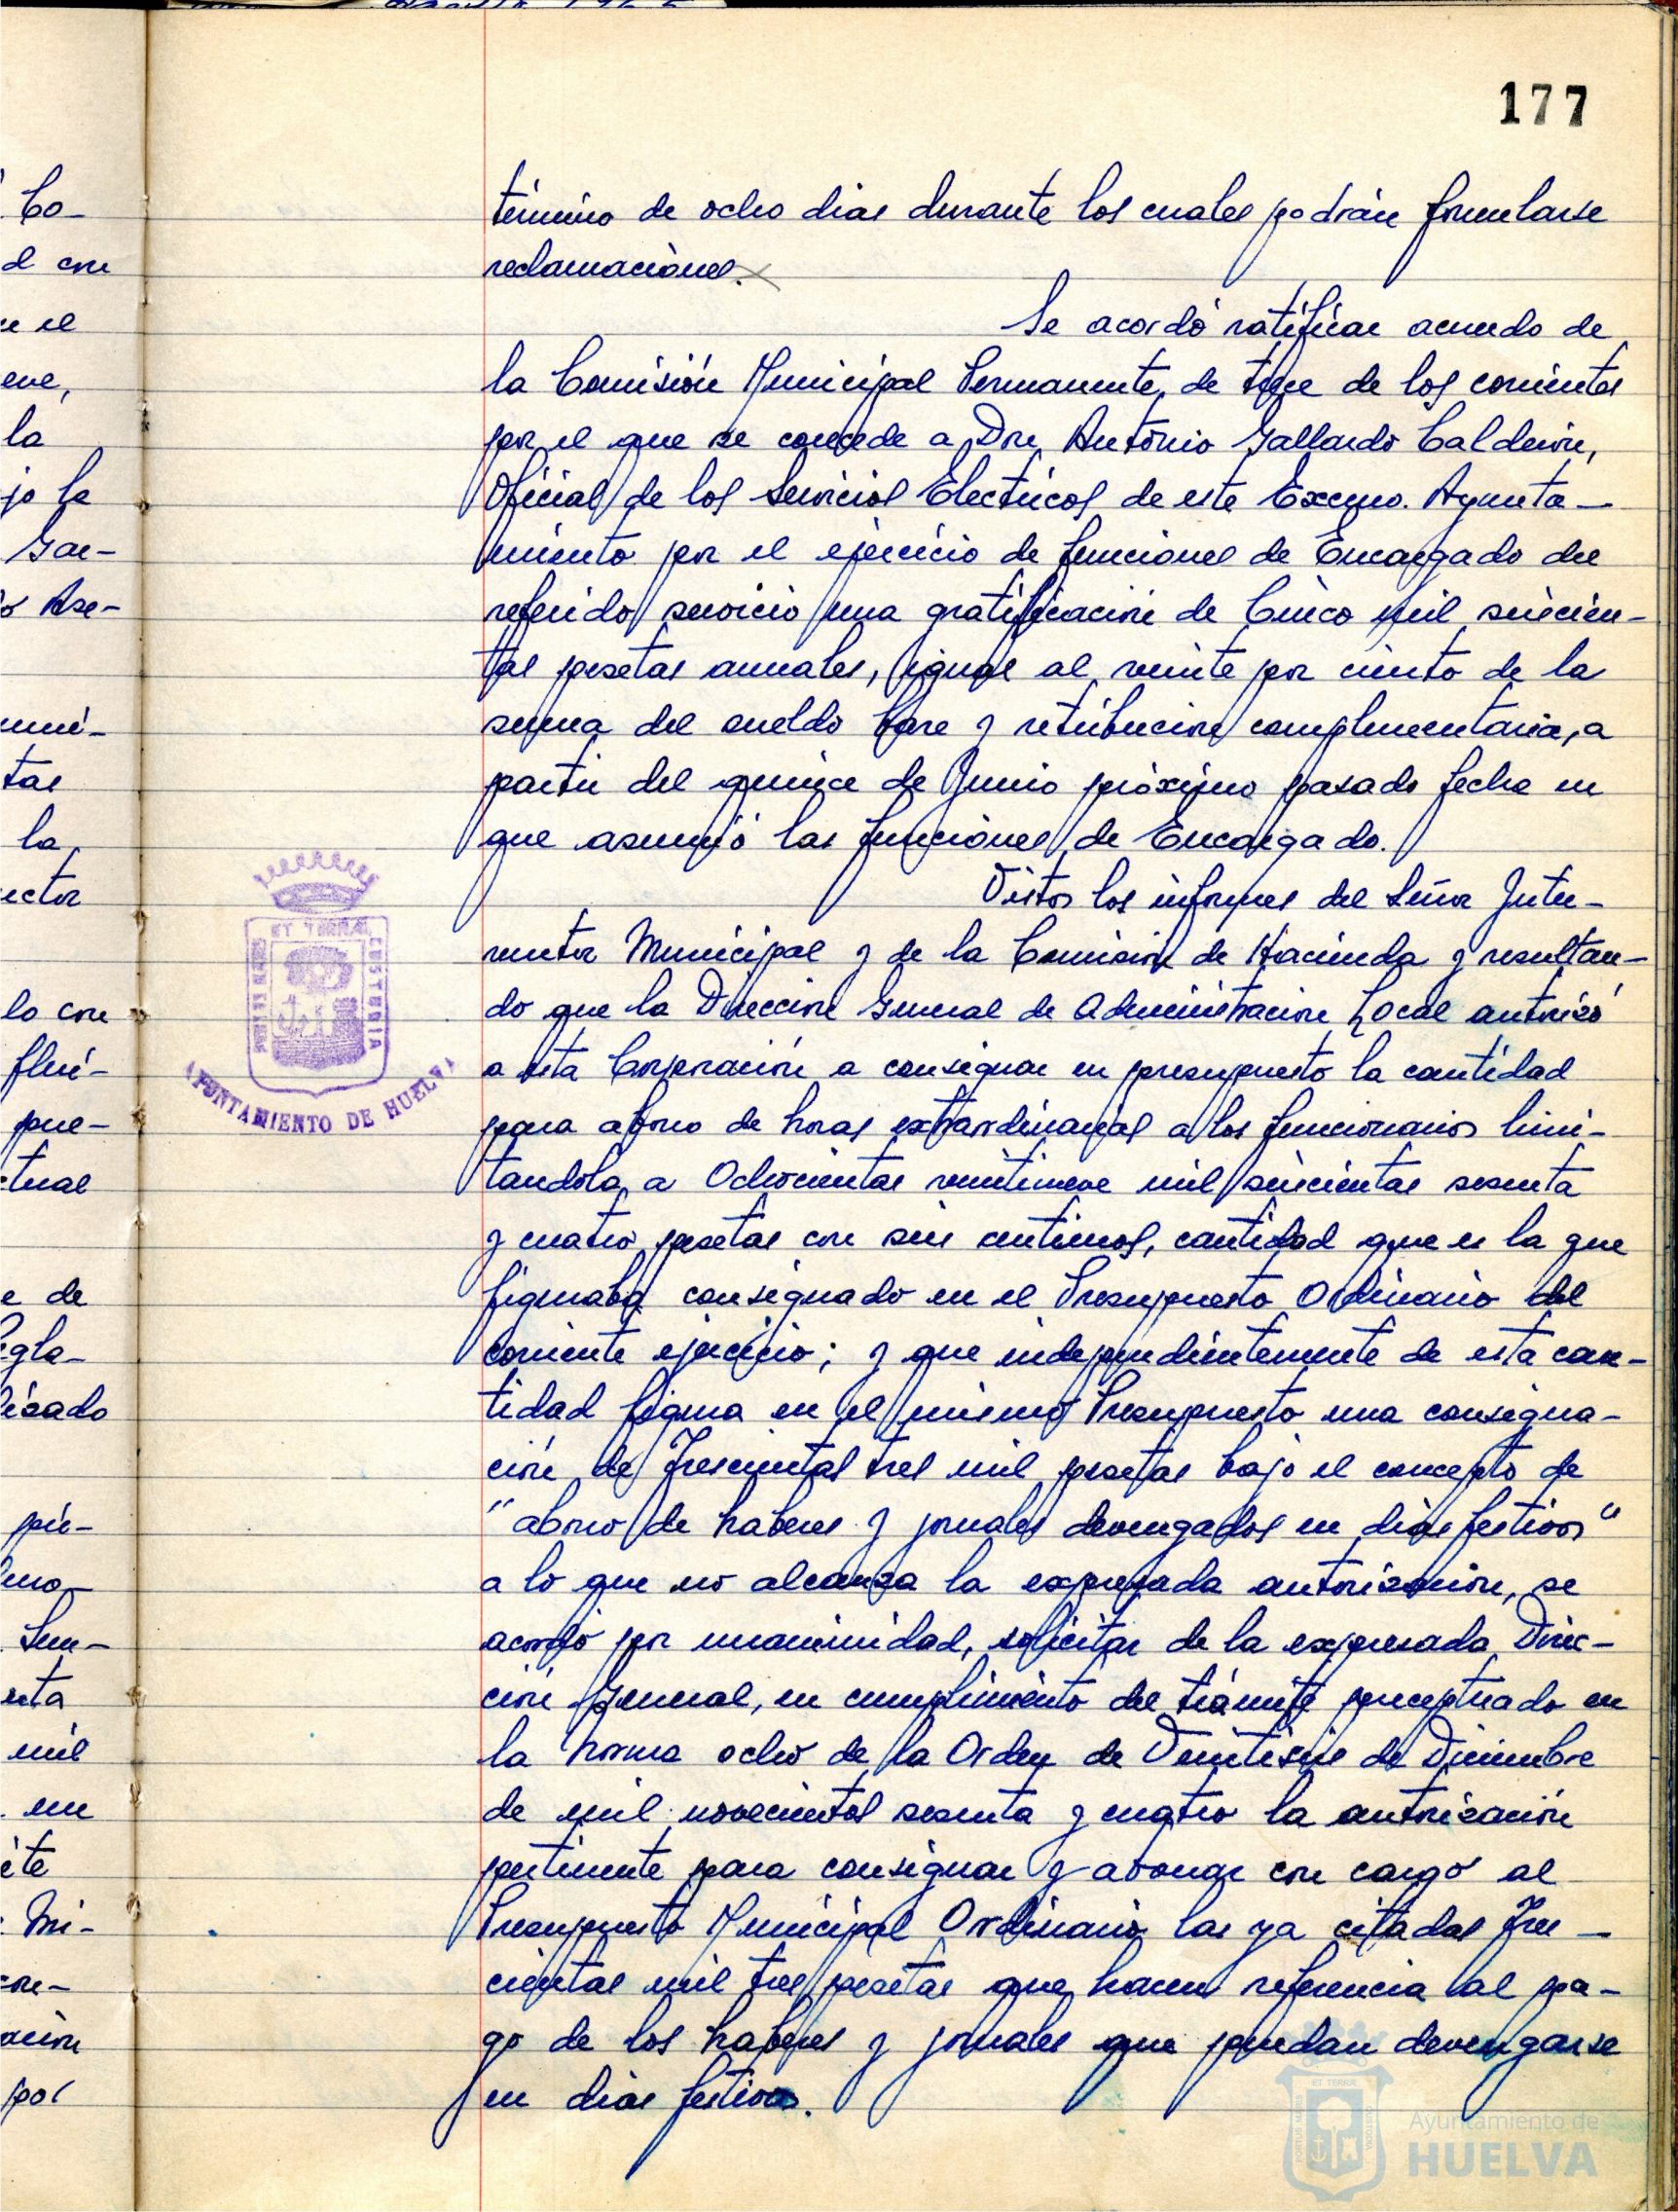 177
término de ocho dias durante los cuales podrán formularse
reclamaciones.
Se acordó ratificar acuerdo de
la Comisión Municipal Permanente, de trece de los corrientes
por el que se concede a Don Antonio Gallardo Calderón,
Oficial de los Servicios Electricos de este Excmo. Ayunta-
miento por el ejercicio de funciones de Encargado del
referido servicio una gratificación de Cinco mil seiscien-
tas pesetas anuales, igual al veinte por ciento de la
suma del sueldo base y retribucion complementaria, a
partir del quince de Junio próximo pasado fecha en
que asumió las funciones de Encargado.
Vistos los informes del Señor Inter-
ventor Municipal y de la Comision de Hacienda y resultan-
do que la Direccion General de Administracion Local autorizó
a esta Corporación a consignar en presupuesto la cantidad
para abono de horas extraordinarias a los funcionarios limi-
tandola a Ochocientas veintinueve mil seiscientas sesenta
y cuatro pesetas con seis centimos, cantidad que es la que
figuraba consignado en el Presupuesto Ordinario del
corriente ejercicio; y que independientemente de esta can-
tidad figura en el mismo Presupuesto una consigna-
ción de Trescientas tres mil pesetas bajo el concepto de
"abono de haberes y jornales devengados en dias festivos"
a lo que no alcanza la expresada autorización, se
acordó por unanimidad, solicitar de la expresada Direc-
ción General, en cumplimiento del trámite preceptuado en
la norma ocho de la Orden de Veintiseis de Diciembre
de mil novecientos sesenta y cuatro la autorización
pertinente para consignar y abonar con cargo al
Presupuesto Municipal Ordinario las ya citadas Tres-
cientas mil tres pesetas que hacen referencia al pa-
go de los haberes y jornales que puedan devengarse
en dias festivos.
AYUNTAMIENTO DE HUELVA
Ayuntamiento de
HUELVA